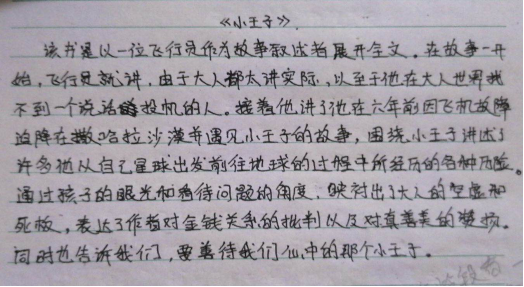 《小王子》
该书是以一位飞行员作为故事叙述者展开全文。在故事一开
始，飞行员就讲，由于大人都太讲实际，以至于他在大人世界找
不到一个说话投机的人。接着他讲了他在六年前因飞机故障
迫降在撒哈拉沙漠并遇见小王子的故事，围绕小王子讲述了
许多他从自己星球出发前往地球的过程中所经历的各种历险。
通过孩子的眼光和看待问题的角度，映衬出了大人的空虚和
死板，表达了作者对金钱关系的批判以及对真善美的赞扬。
同时也告诉我们，要善待我们心中的那个小王子。